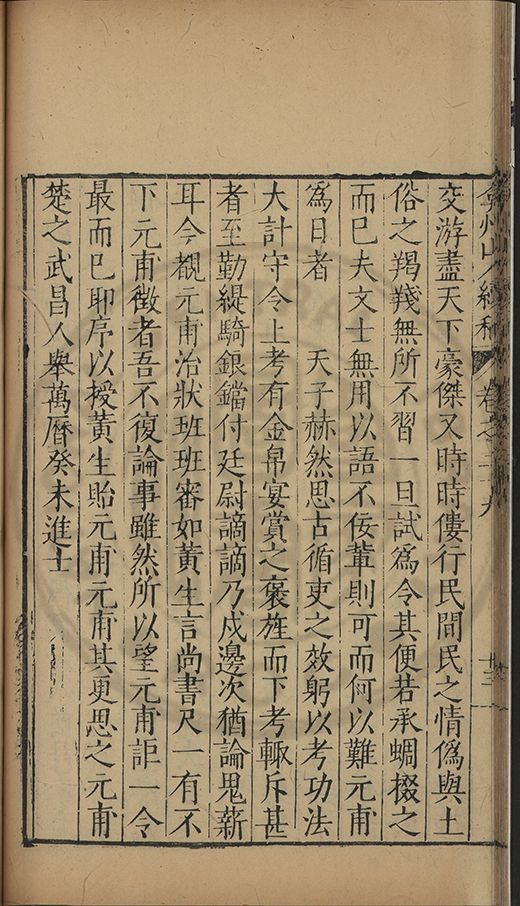 弇州山人續稿 卷之三十九 十三
交游盡天下豪傑又時時僂行民間民之情僞與土
俗之羯羠無所不習一旦試爲令其便若承蜩掇之
而已夫文士無用以語不佞輩則可而何以難元甫
爲日者 天子赫然思古循吏之效躬以考功法
大計守令上考有金帛宴賞之褒旌而下考輙斥甚
者至勤緹騎銀鐺付廷尉謫謫乃戍邊次猶論鬼薪
耳今覩元甫治狀班班審如黃生言尚書尺一有不
下元甫徵者吾不復論事雖然所以望元甫詎一令
最而已耶序以授黃生貽元甫元甫其更思之元甫
楚之武昌人舉萬曆癸未進士